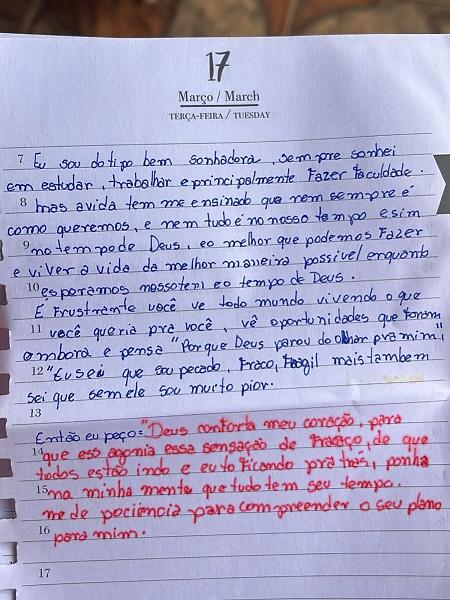 17
Março / March
TERÇA-FEIRA / TUESDAY
7 Eu sou do tipo bem sonhadora, sempre sonhei
em estudar, trabalhar e principalmente Fazer Faculdade.
8 mas a vida tem me ensinado que nem sempre é
como queremos, e nem tudo é no nosso tempo e sim
9 no tempo de Deus, e o melhor que podemos Fazer
e viver a vida da melhor maneira possivel enquanto
10 esporamos nosso tempo de Deus.
É Frustrante você ve todo mundo vivendo o que
11 você queria pra você, vê oportunidades que foram
embora e pensa "Porque Deus parou do olhar pra mim",
12 "Eu sei que sou pecado, Fraco, Fragil mais tambem
sei que sem ele sou muito pior.
13
Então eu peço: "Deus conforta meu coração, para
14 que ess agonia essa sensação de Fracaço, de que
todos estão indo e eu to Ficando pra trás, ponha
15 na minha mente que tudo tem seu tempo.
me de paciência para compreender o seu plano
16 para mim.
17